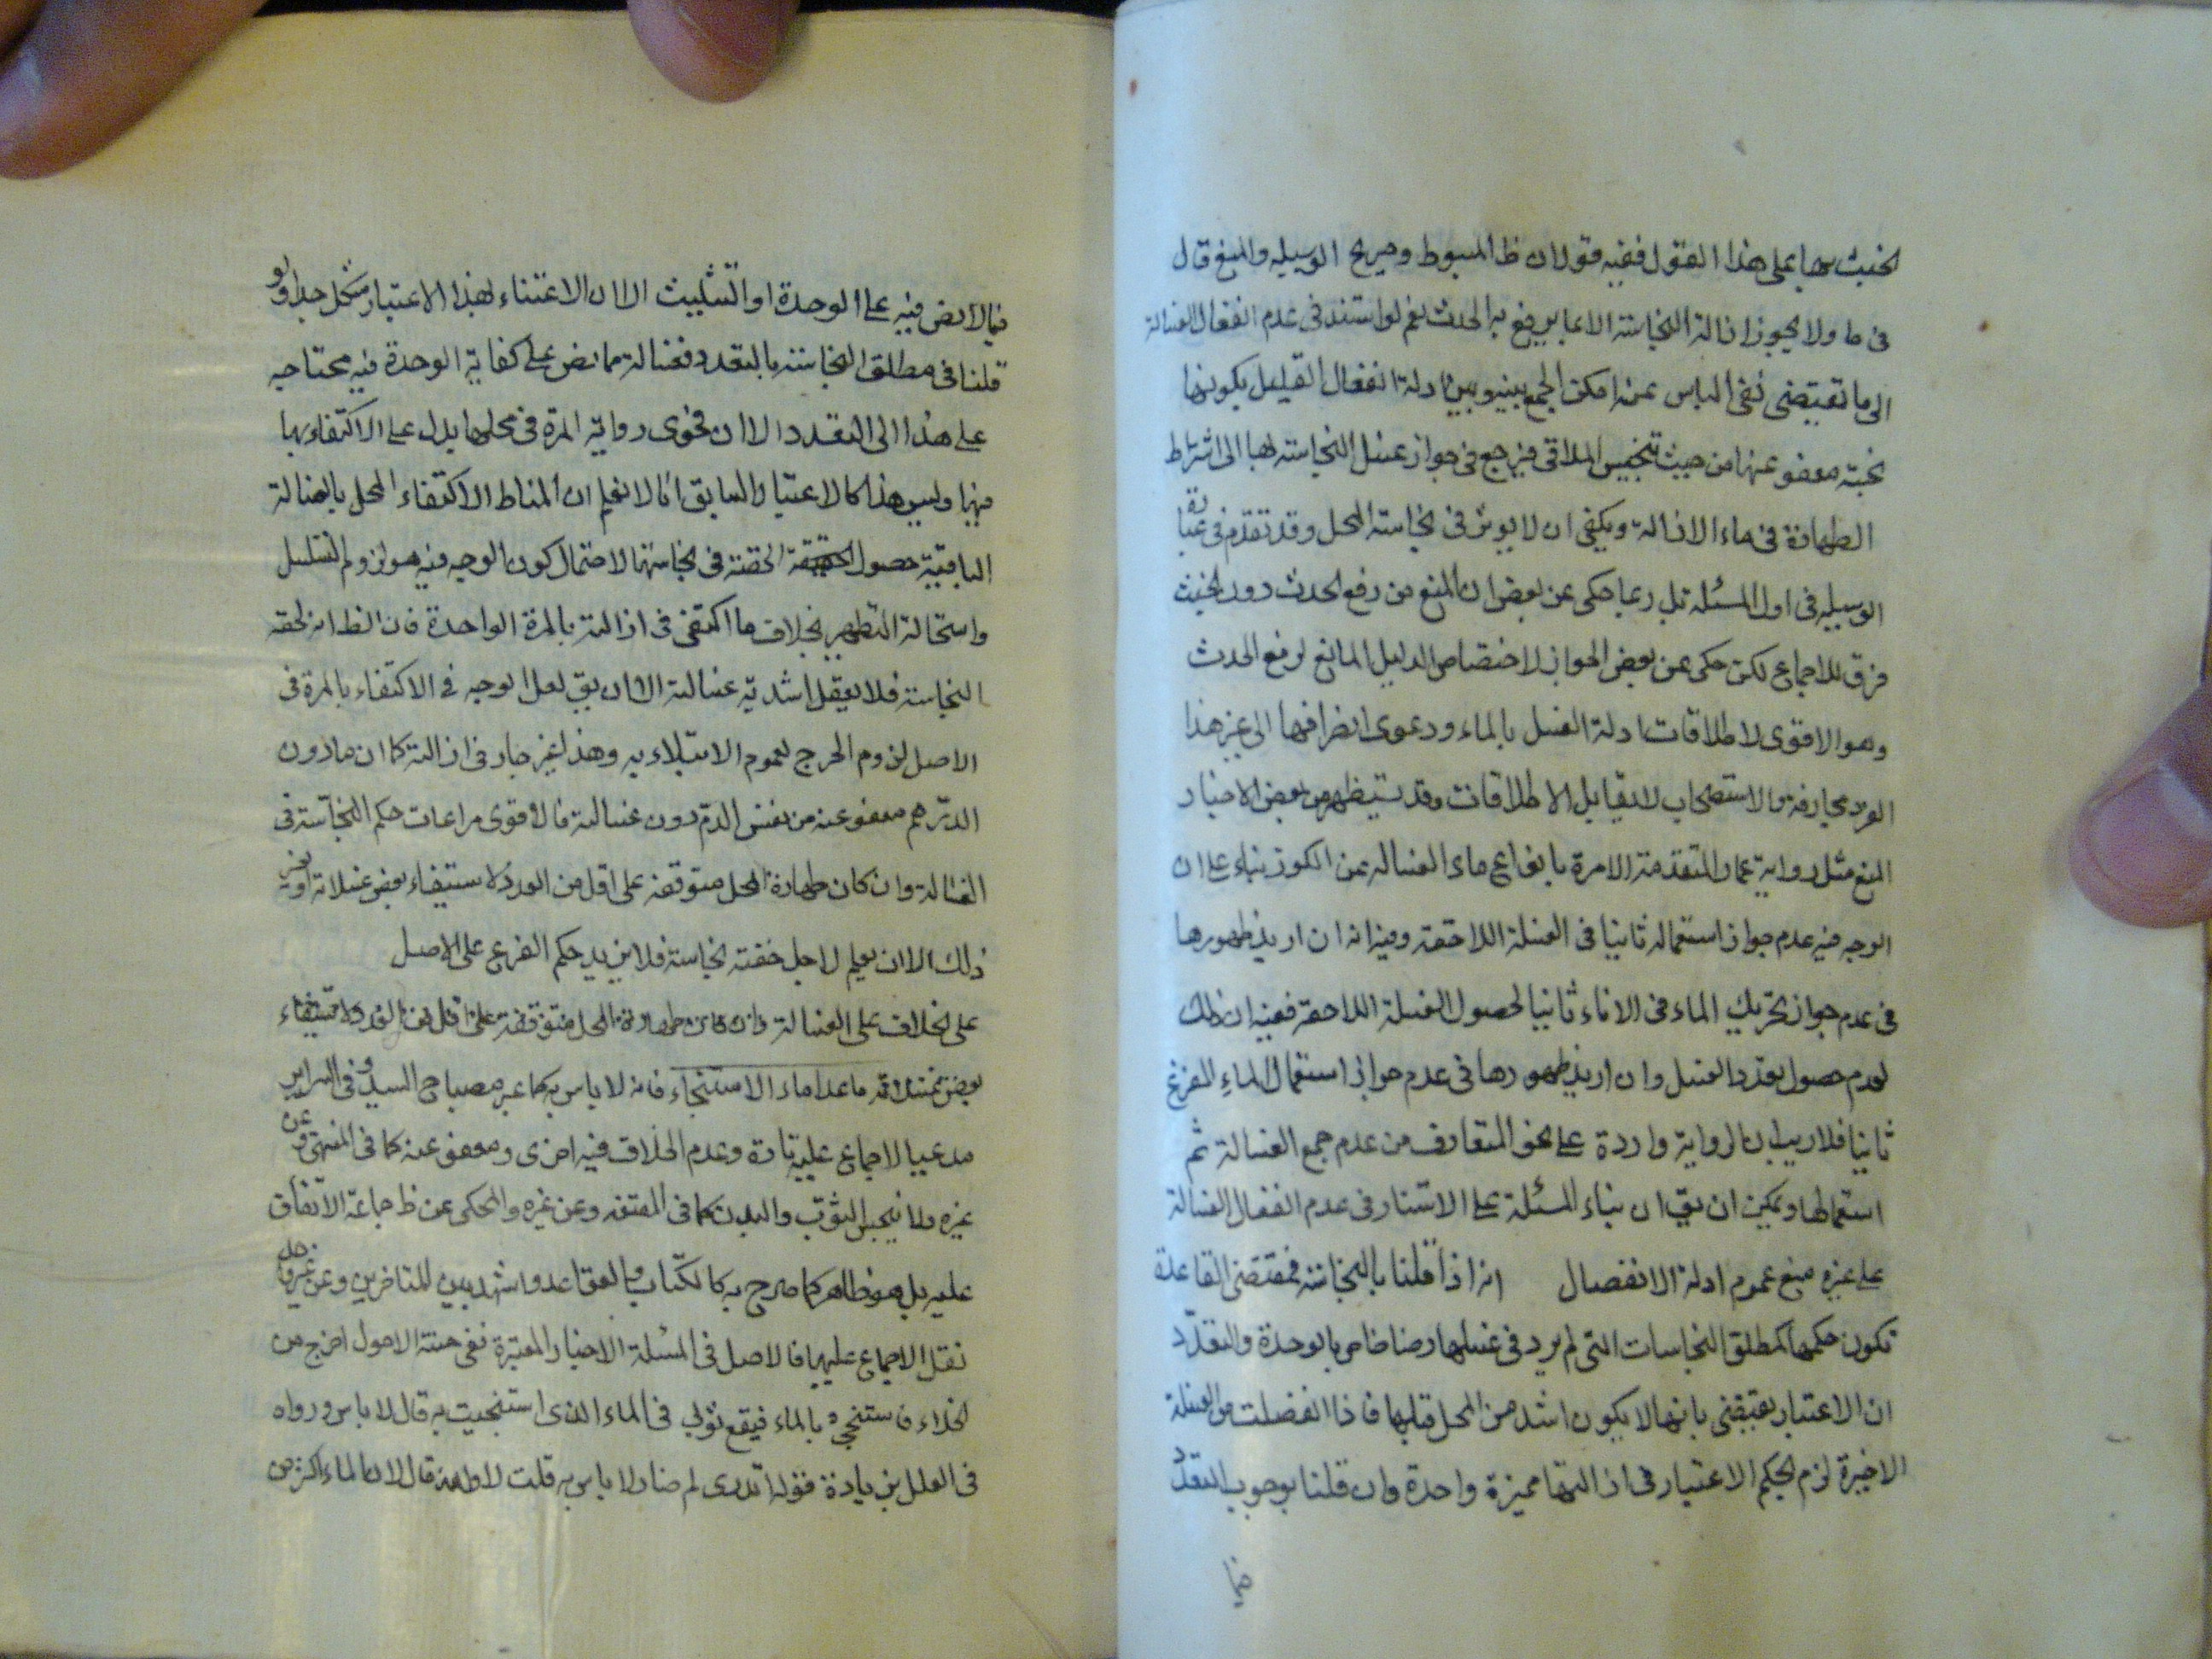 الخبث بها على هذا القول ففيه قولان ظ المبسوط وصريح الوسيله والمنع قال
فى ط ولا يجوز ازالة النجاسته الا بما يرفع به الحدث نعم لو استند فى عدم انفعال الغسالة
الى ما تقتضى نفى الباس عنه امكن الجمع بينه وبين ادلة انفعال القليل بكونها
نجسة معفو عنها من حيث تنجيس الملاقى فيرجع فى جواز غسل النجاسته بها الى اشتراط
الطهارة فى ماء الازالة ويكفى ان لا يوثر فى نجاسته المحل وقد تقدم فى عبارة
الوسيله فى اول المسئله بل ربما حكى عن بعض ان المنع من رفع الحدث دون الخبث
فرق للاجماع لكن حكى عن بعض الجواز لاختصاص الدليل المانع لرفع الحدث
وهو الاقوى لاطلاقات ادلة الغسل بالماء ودعوى انصرافها الى غير هذا
الفرد مجازفة والاستصحاب لا يقابل الاطلاقات وقد يستظهر من بعض الاخبار
المنع مثل رواية عمار المتقدمة الامرة بافراغ ماء الغساله عن الكوز بناء على ان
الوجه فيه عدم جواز استعماله ثانيا فى الغسلة اللاحقة وفيه انه ان اريد ظهورها
فى عدم جواز تحريك الماء فى الاناء ثانيا لحصول الغسلة اللاحقة ففيه ان ذلك
لعدم حصول تعدد الغسل وان اريد ظهورها فى عدم جواز استعمال الماء المفرغ
ثانيا فلا ريب ان الرواية واردة على نحو المتعارف من عدم جمع الغسالة ثم
استعمالها ويمكن ان يق ان بناء المسئلة على الاستناد فى عدم انفعال الغسالة
على غيره منع عموم ادلة الانفصال انه اذا قلنا بالنجاسته فمقتضى القاعدة
تكون حكمها كمطلق النجاسات التى لم يرد فى غسلها نصا خاص بالوحدة والتعدد
ان الاعتبار يقتضى بانها لا يكون اشد من المحل قبلها فاذا انفصلت من الغسلة
الاخيرة لزم بحكم الاعتبار فى ازالتها مرة واحدة وان قلنا بوجوب التعدد
فيما
فيما لا نص فيه على الوحدة او التثليث الا ان الاعتناء بهذا الاعتبار مشكل جدا ولو
قلنا فى مطلق النجاسته بالتعدد فغسالة مما نص على كفاية الوحدة فيه محتاجه
على هذا الى التعدد الا ان فحوى رواية المرة فى محلها يدل على الاكتفاء بها
فيها وليس هذا كالاعتبار السابق اذ لا نعلم ان المناط الاكتفاء المحل بالغسالة
الباقية حصول الخفة فى نجاستها لاحتمال كون الوجه فيه هو لزوم التسلسل
واستحالة التطهير بخلاف ما اكتفى فى ازالته بالمرة الواحدة فان الظ انه لخفه
النجاسة فلا يعقل اشدية غسالته الا ان يق لعل الوجه فى الاكتفاء بالمرة فى
الاصل لزوم الحرج لعموم الابتلاء به وهذا غير جار فى ازالته كما ان ما دون
الدرهم معفو عنه من نفس الدم دون غسالته فالاقوى مراعات حكم النجاسة فى
الغسالة وان كان طهارة المحل متوقفه على اقل من العدد لاستيفاء بعض غسلاته او غير
ذلك الا ان يعلم لاجل خفته نجاسته فلا يزيد حكم الفرع على الاصل
على الخلاف على الغسالة وان كان طهارة المحل متوقفة على اقل من العدد لاستيفاء
بعض غسلاته ما عدا ماء الاستنجاء فانه لا باس به كما عن مصباح السيد وفى السرائر
مدعيا الاجماع عليه تارة وعدم الخلاف فيه اخرى ومعفو عنه كما فى المنتهى وعن
غيره ولا ينجس الثوب والبدن كما فى المقنعه وعن غيره والمحكى عن ظ جماعة الاتفاق
عليه بل هو طاهر كما صرح به كالكتاب والقواعد واشتهر بين المتاخرين وعن غير واحد
نقل الاجماع عليها فالاصل فى المسئلة الاخبار المعتبرة ففى حسنة الاحول اخرج من
الخلاء فاستنجى بالماء فيقع ثوبى فى الماء الذى استنجيت به قال لا باس ورواه
فى العلل بزيادة قوله اتدرى لم صار لا باس به قلت لا والله قال لان الماء اكثر من